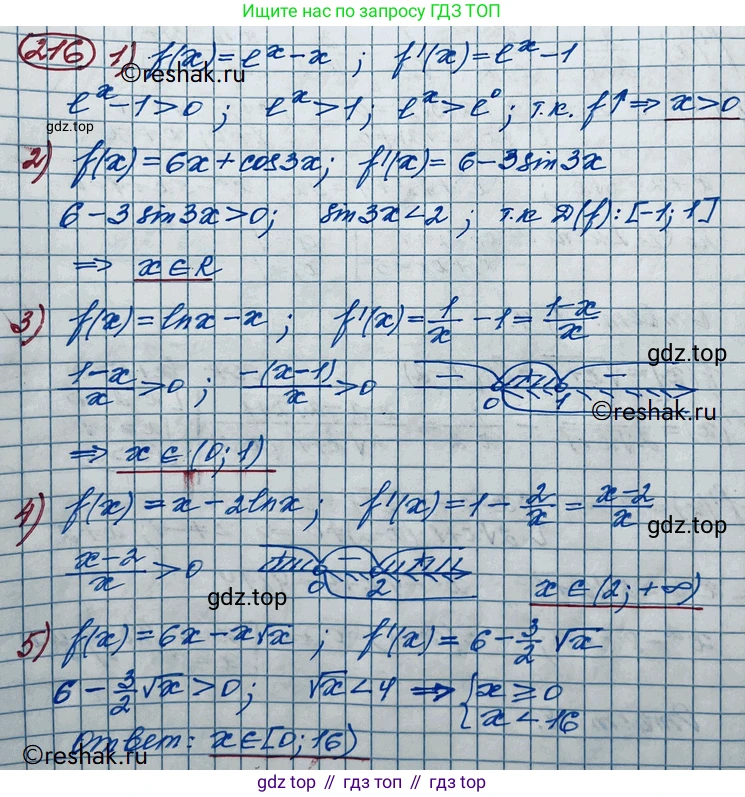 Ищите нас по запросу ГДЗ ТОП
216 1) f(x)=e^x-x ; f'(x)=e^x-1
©reshak.ru
e^x-1>0 ; e^x>1; e^x>e^0; т.к. f↑⇒ x>0
gdz.top
2) f(x)=6x+cos3x; f'(x)=6-3sin3x
6-3sin3x>0; sin3x<2 ; т.к D(f):[-1;1]
⇒ x∈R
3) f(x)=lnx-x ; f'(x)=1/x-1=(1-x)/x
gdz.top
(1-x)/x>0 ; -(x-1)/x>0 - + -
0 1
©reshak.ru
⇒ x∈(0;1)
4) f(x)=x-2lnx; f'(x)=1-2/x=(x-2)/x
gdz.top
(x-2)/x>0 + - +
0 2 x∈(2;+∞)
gdz.top
5) f(x)=6x-x√x ; f'(x)=6-3/2√x
6-3/2√x>0; √x<4 ⇒ {x≥0
x<16
Ответ: x∈[0;16)
©reshak.ru
gdz.top
gdz top // гдз топ // gdz.top